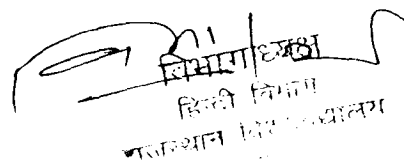 विभागाध्यक्ष
हिन्दी विभाग
राजस्थान विश्वविद्यालय